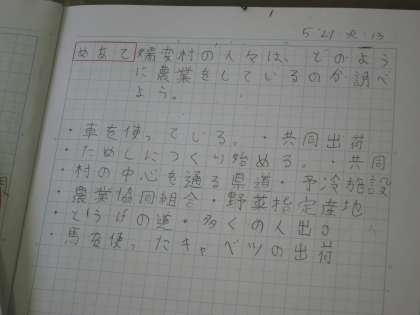 5.21 火.13
めあて 嬬恋村の人々は、どのよう
に農業をしているのか調べ
よう。
・車を使っている。・共同出荷
・ためしにつくり始める。・共同
・村の中心を通る県道・予冷施設
・農業協同組合・野菜指定産地
・とうげの道・多くの人出
・馬を使ったキャベツの出荷